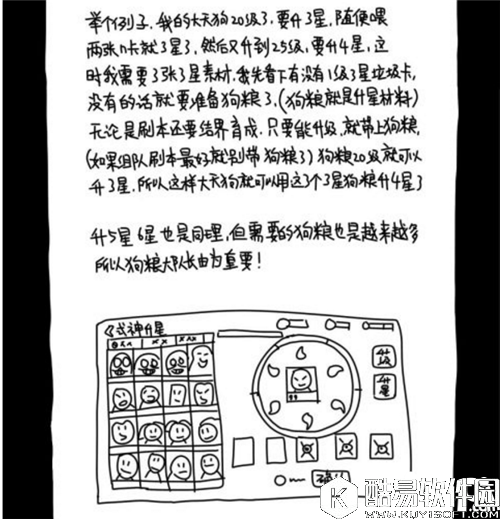 举个例子，我的大天狗20级了，要升3星，随便喂
两张n卡就3星了，然后又升到25级，要升4星，这
时我需要3张3星素材，我先看下有没有1级3星垃圾卡，
没有的话就要准备狗粮了，(狗粮就是升星材料)
无论是刷本还要结界育成，只要能升级，就带上狗粮，
(如果组队刷本最好就别带狗粮了)狗粮20级就可以
升3星，所以这样大天狗就可以用这3个3星狗粮升4星了
升5星6星也是同理，但需要的狗粮也是越来越多
所以狗粮大队长由为重要！
式神升星
升级
升星
确认
K 酷易软件园
WWW.KUYISOFT.COM